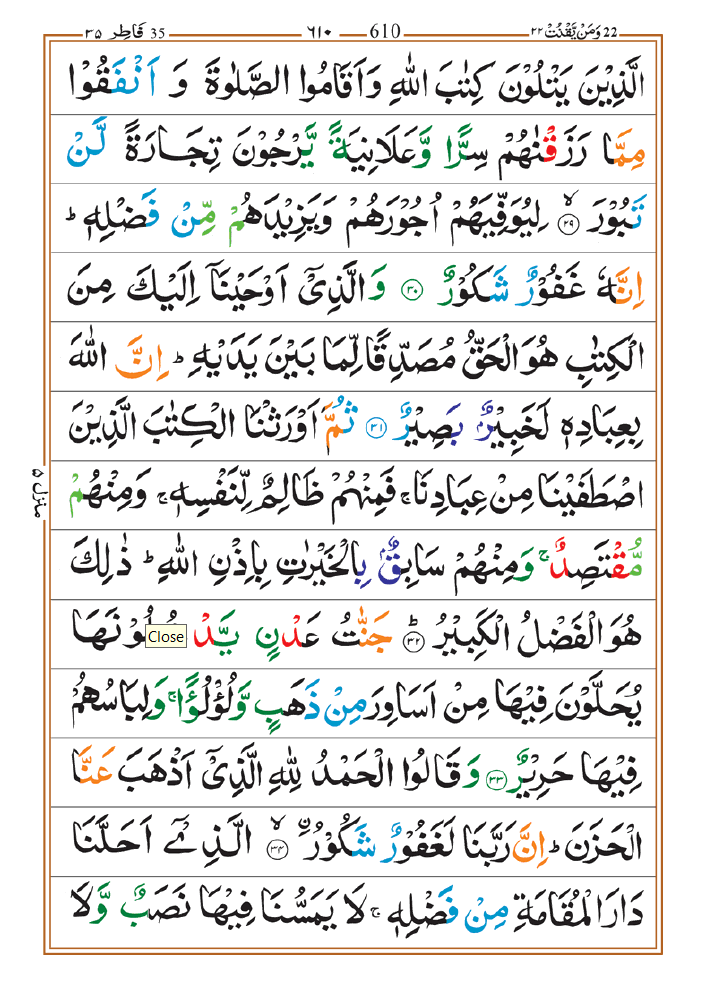 22 وَمَنْ يَّقْنُتْ ٢٢ — 610 — ٦١٠ — 35 فَاطِر ٣٥
الَّذِيْنَ يَتْلُوْنَ كِتٰبَ اللّٰهِ وَاَقَامُوا الصَّلٰوةَ وَ اَنْفَقُوْا
مِمَّا رَزَقْنٰهُمْ سِرًّا وَّعَلَانِيَةً يَّرْجُوْنَ تِجَارَةً لَّنْ
تَبُوْرَ ۙ﴿۲۹﴾ لِيُوَفِّيَهُمْ اُجُوْرَهُمْ وَيَزِيْدَهُمْ مِّنْ فَضْلِهٖ ؕ
اِنَّهٗ غَفُوْرٌ شَكُوْرٌ ﴿۳۰﴾ وَالَّذِيْۤ اَوْحَيْنَاۤ اِلَيْكَ مِنَ
الْكِتٰبِ هُوَ الْحَقُّ مُصَدِّقًا لِّمَا بَيْنَ يَدَيْهِ ؕ اِنَّ اللّٰهَ
بِعِبَادِهٖ لَخَبِيْرٌۢ بَصِيْرٌ ﴿۳۱﴾ ثُمَّ اَوْرَثْنَا الْكِتٰبَ الَّذِيْنَ
اصْطَفَيْنَا مِنْ عِبَادِنَا ۚ فَمِنْهُمْ ظَالِمٌ لِّنَفْسِهٖ ۚ وَمِنْهُمْ
مُّقْتَصِدٌ ۚ وَمِنْهُمْ سَابِقٌۢ بِالْخَيْرٰتِ بِاِذْنِ اللّٰهِ ؕ ذٰلِكَ
هُوَ الْفَضْلُ الْكَبِيْرُ ؕ﴿۳۲﴾ جَنّٰتُ عَدْنٍ يَّدْ
Close
يُحَلَّوْنَ فِيْهَا مِنْ اَسَاوِرَ مِنْ ذَهَبٍ وَّلُؤْلُؤًا ۚ وَلِبَاسُهُمْ
فِيْهَا حَرِيْرٌ ﴿۳۳﴾ وَقَالُوا الْحَمْدُ لِلّٰهِ الَّذِيْۤ اَذْهَبَ عَنَّا
الْحَزَنَ ؕ اِنَّ رَبَّنَا لَغَفُوْرٌ شَكُوْرُ ۙ﴿۳۴﴾ الَّذِيْۤ اَحَلَّنَا
دَارَ الْمُقَامَةِ مِنْ فَضْلِهٖ ۚ لَا يَمَسُّنَا فِيْهَا نَصَبٌ وَّلَا
منزل ۵